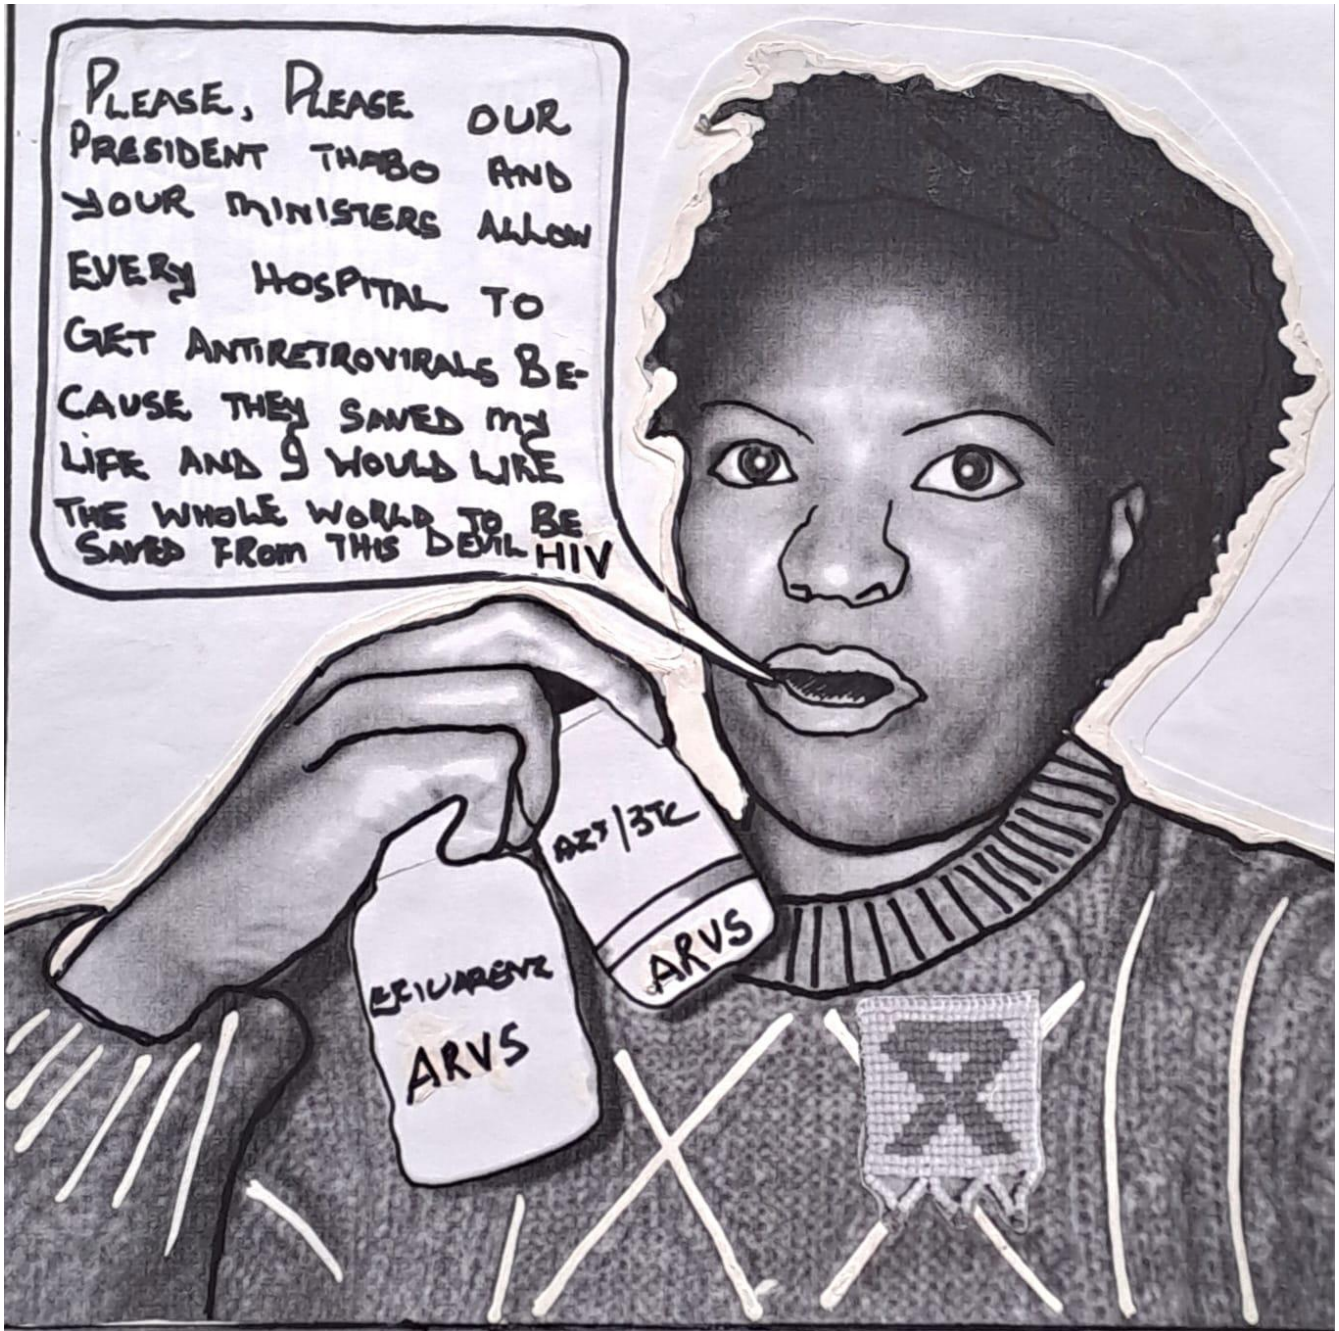 PLEASE, PLEASE OUR
PRESIDENT THABO AND
YOUR MINISTERS ALLOW
EVERY HOSPITAL TO
GET ANTIRETROVIRALS BE-
CAUSE THEY SAVED MY
LIFE AND I WOULD LIKE
THE WHOLE WORLD TO BE
SAVED FROM THIS DEVIL HIV
AZT/3TC
ARVS
EFIVARENZ
ARVS